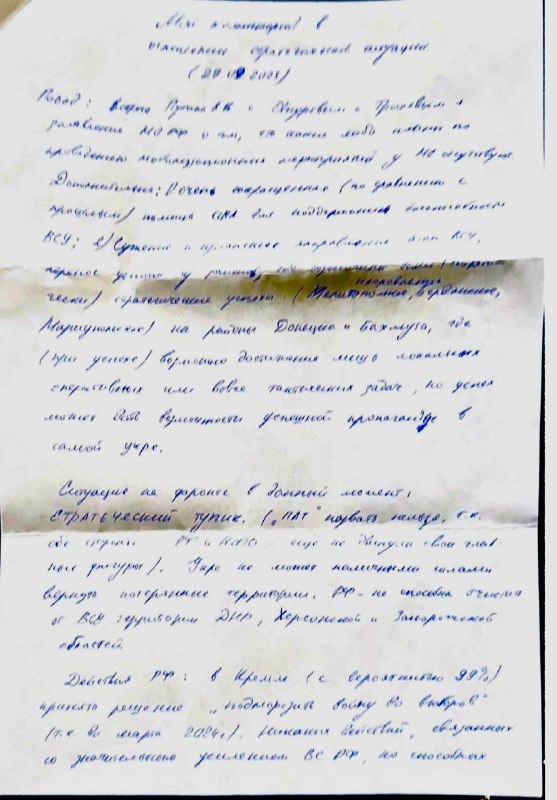 Мои комментарии в
отношении стратегической ситуации
(29.09.2023)
Повод: встреча Путина В.В. с Евкуровым и Трошевым и
заявление МО РФ о том, что каких либо планов по
проведению мобилизационных мероприятий у МО
Дополнительно: 1) очень сокращенная (по сравнению с
прошлым) помощь США для поддержания боеспособности
ВСУ; 2) Сужение и изменение направления атак ВСУ,
перенос усилий у районов, где возможны были (теорети-
чески) стратегические успехи (Мелитопольское, Бердянское, направления
Мариупольское) на районы Донецка и Бахмута, где
(при успехе) возможно достижение лишь локальных
оперативных или вовсе тактических задач, но успех
может дать возможность успешной пропаганде в
самой укре.
Ситуация на фронте в данный момент:
СТРАТЕГИЧЕСКИЙ ТУПИК. ("ПАТ" назвать нельзя, т.к.
обе стороны РФ и НАТО - еще не двинули свои глав-
ные фигуры). Укре не может наличными силами
вернуть потерянные территории, РФ - не способна очистить
от ВСУ территории ДНР, Херсонской и Запорожской
областей.
Действия РФ: в Кремле (с вероятностью 99%)
принято решение "подморозить войну до выборов"
(т.е. до марта 2024г.). Никаких действий, связанных
со значительным усилением ВС РФ, но способных